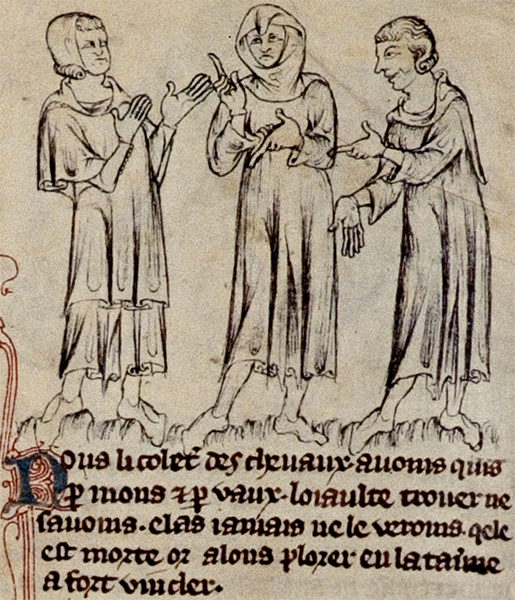 Nous li coler des cheuaux auoms quis
ꝑ mons ⁊ ꝑ vaux. loiaulte trouer ne
sauoms. elas iamais ne le veroms. qele
est morte or aloms plorer en la tau̾ne
a fort vin cler.